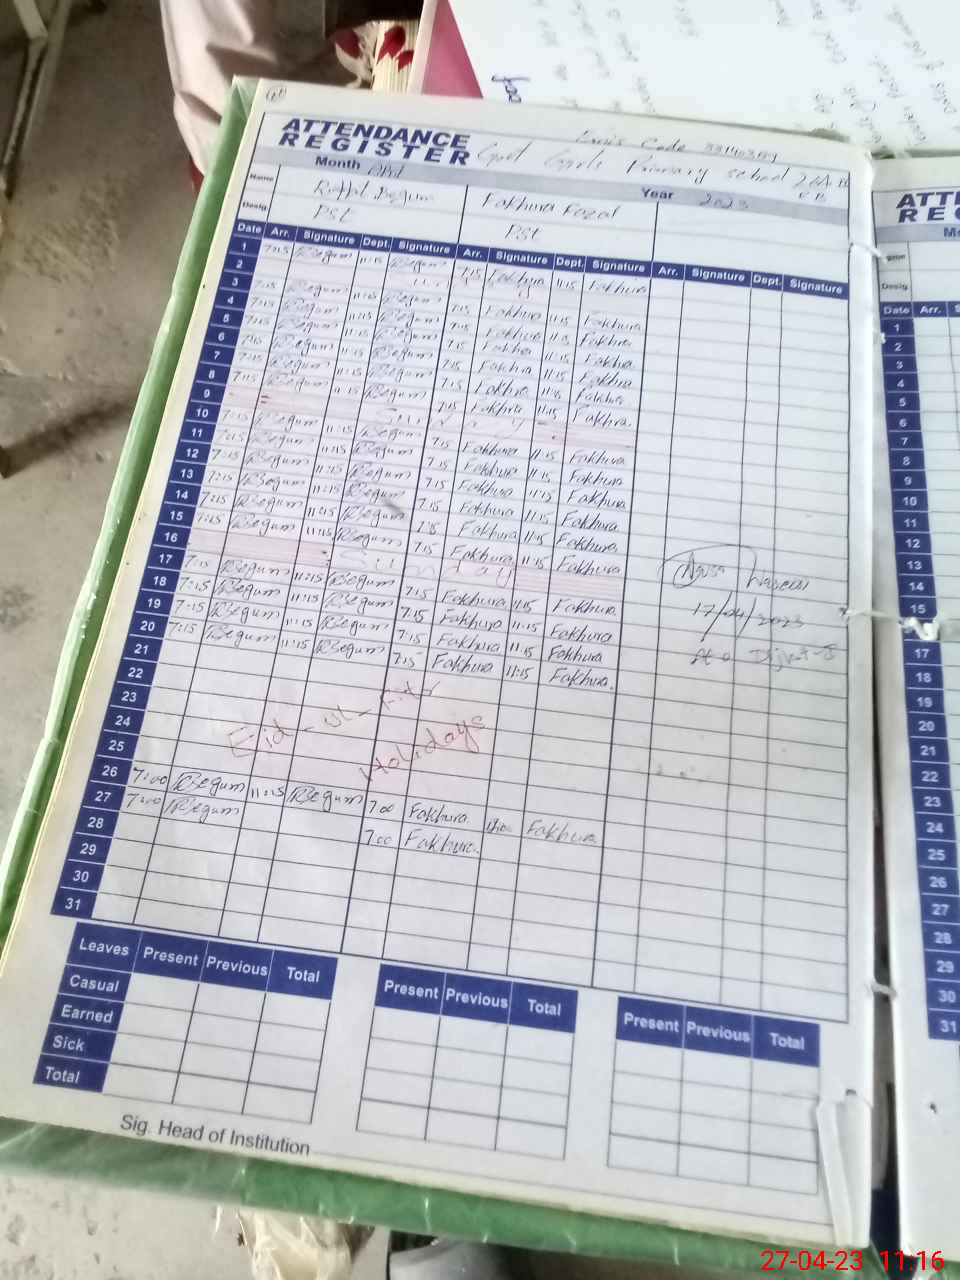 ATTENDANCE
REGISTER
Code
Govt Girls Primary school
Month April Year 2023
Name Begum Fakhura Fozal
Desig. Pst Pst
Date Arr. Signature Dept. Signature Arr. Signature Dept. Signature Arr. Signature Dept. Signature
1 7:15 Begum 11:15 Begum 7:15 Fakhura 11:15 Fakhura
2
3 7:15 Begum 11:15 Begum 7:15 Fakhura 11:15 Fakhura
4 7:15 Begum 11:15 Begum 7:15 Fakhura 11:15 Fakhura
5 7:15 Begum 11:15 Begum 7:15 Fakhura 11:15 Fakhura
6 7:15 Begum 11:15 Begum 7:15 Fakhura 11:15 Fakhura
7 7:15 Begum 11:15 Begum 7:15 Fakhura 11:15 Fakhura
8 7:15 Begum 11:15 Begum 7:15 Fakhura 11:15 Fakhura
9
10 7:15 Begum 11:15 Begum 7:15 Fakhura 11:15 Fakhura
11 7:15 Begum 11:15 Begum 7:15 Fakhura 11:15 Fakhura
12 7:15 Begum 11:15 Begum 7:15 Fakhura 11:15 Fakhura
13 7:15 Begum 11:15 Begum 7:15 Fakhura 11:15 Fakhura
14 7:15 Begum 11:15 Begum 7:15 Fakhura 11:15 Fakhura
15 7:15 Begum 11:15 Begum 7:15 Fakhura 11:15 Fakhura
16 Sunday
17 7:15 Begum 11:15 Begum 7:15 Fakhura 11:15 Fakhura
18 7:15 Begum 11:15 Begum 7:15 Fakhura 11:15 Fakhura
19 7:15 Begum 11:15 Begum 7:15 Fakhura 11:15 Fakhura
20 7:15 Begum 11:15 Begum 7:15 Fakhura 11:15 Fakhura.
17/04/2023
21
22
23
24
25
Eid-ul-Fitr
Holidays
26 7:00 Begum 11:15 Begum 7:00 Fakhura Fakhura
27 7:00 Begum 7:00 Fakhura.
28
29
30
31
Leaves Present Previous Total Present Previous Total Present Previous Total
Casual
Earned
Sick
Total
Sig. Head of Institution
Desig.
Date Arr.
1
2
3
4
5
6
7
8
9
10
11
12
13
14
15
17
18
19
20
21
22
23
24
25
26
27
28
29
30
31
27-04-23 11:16